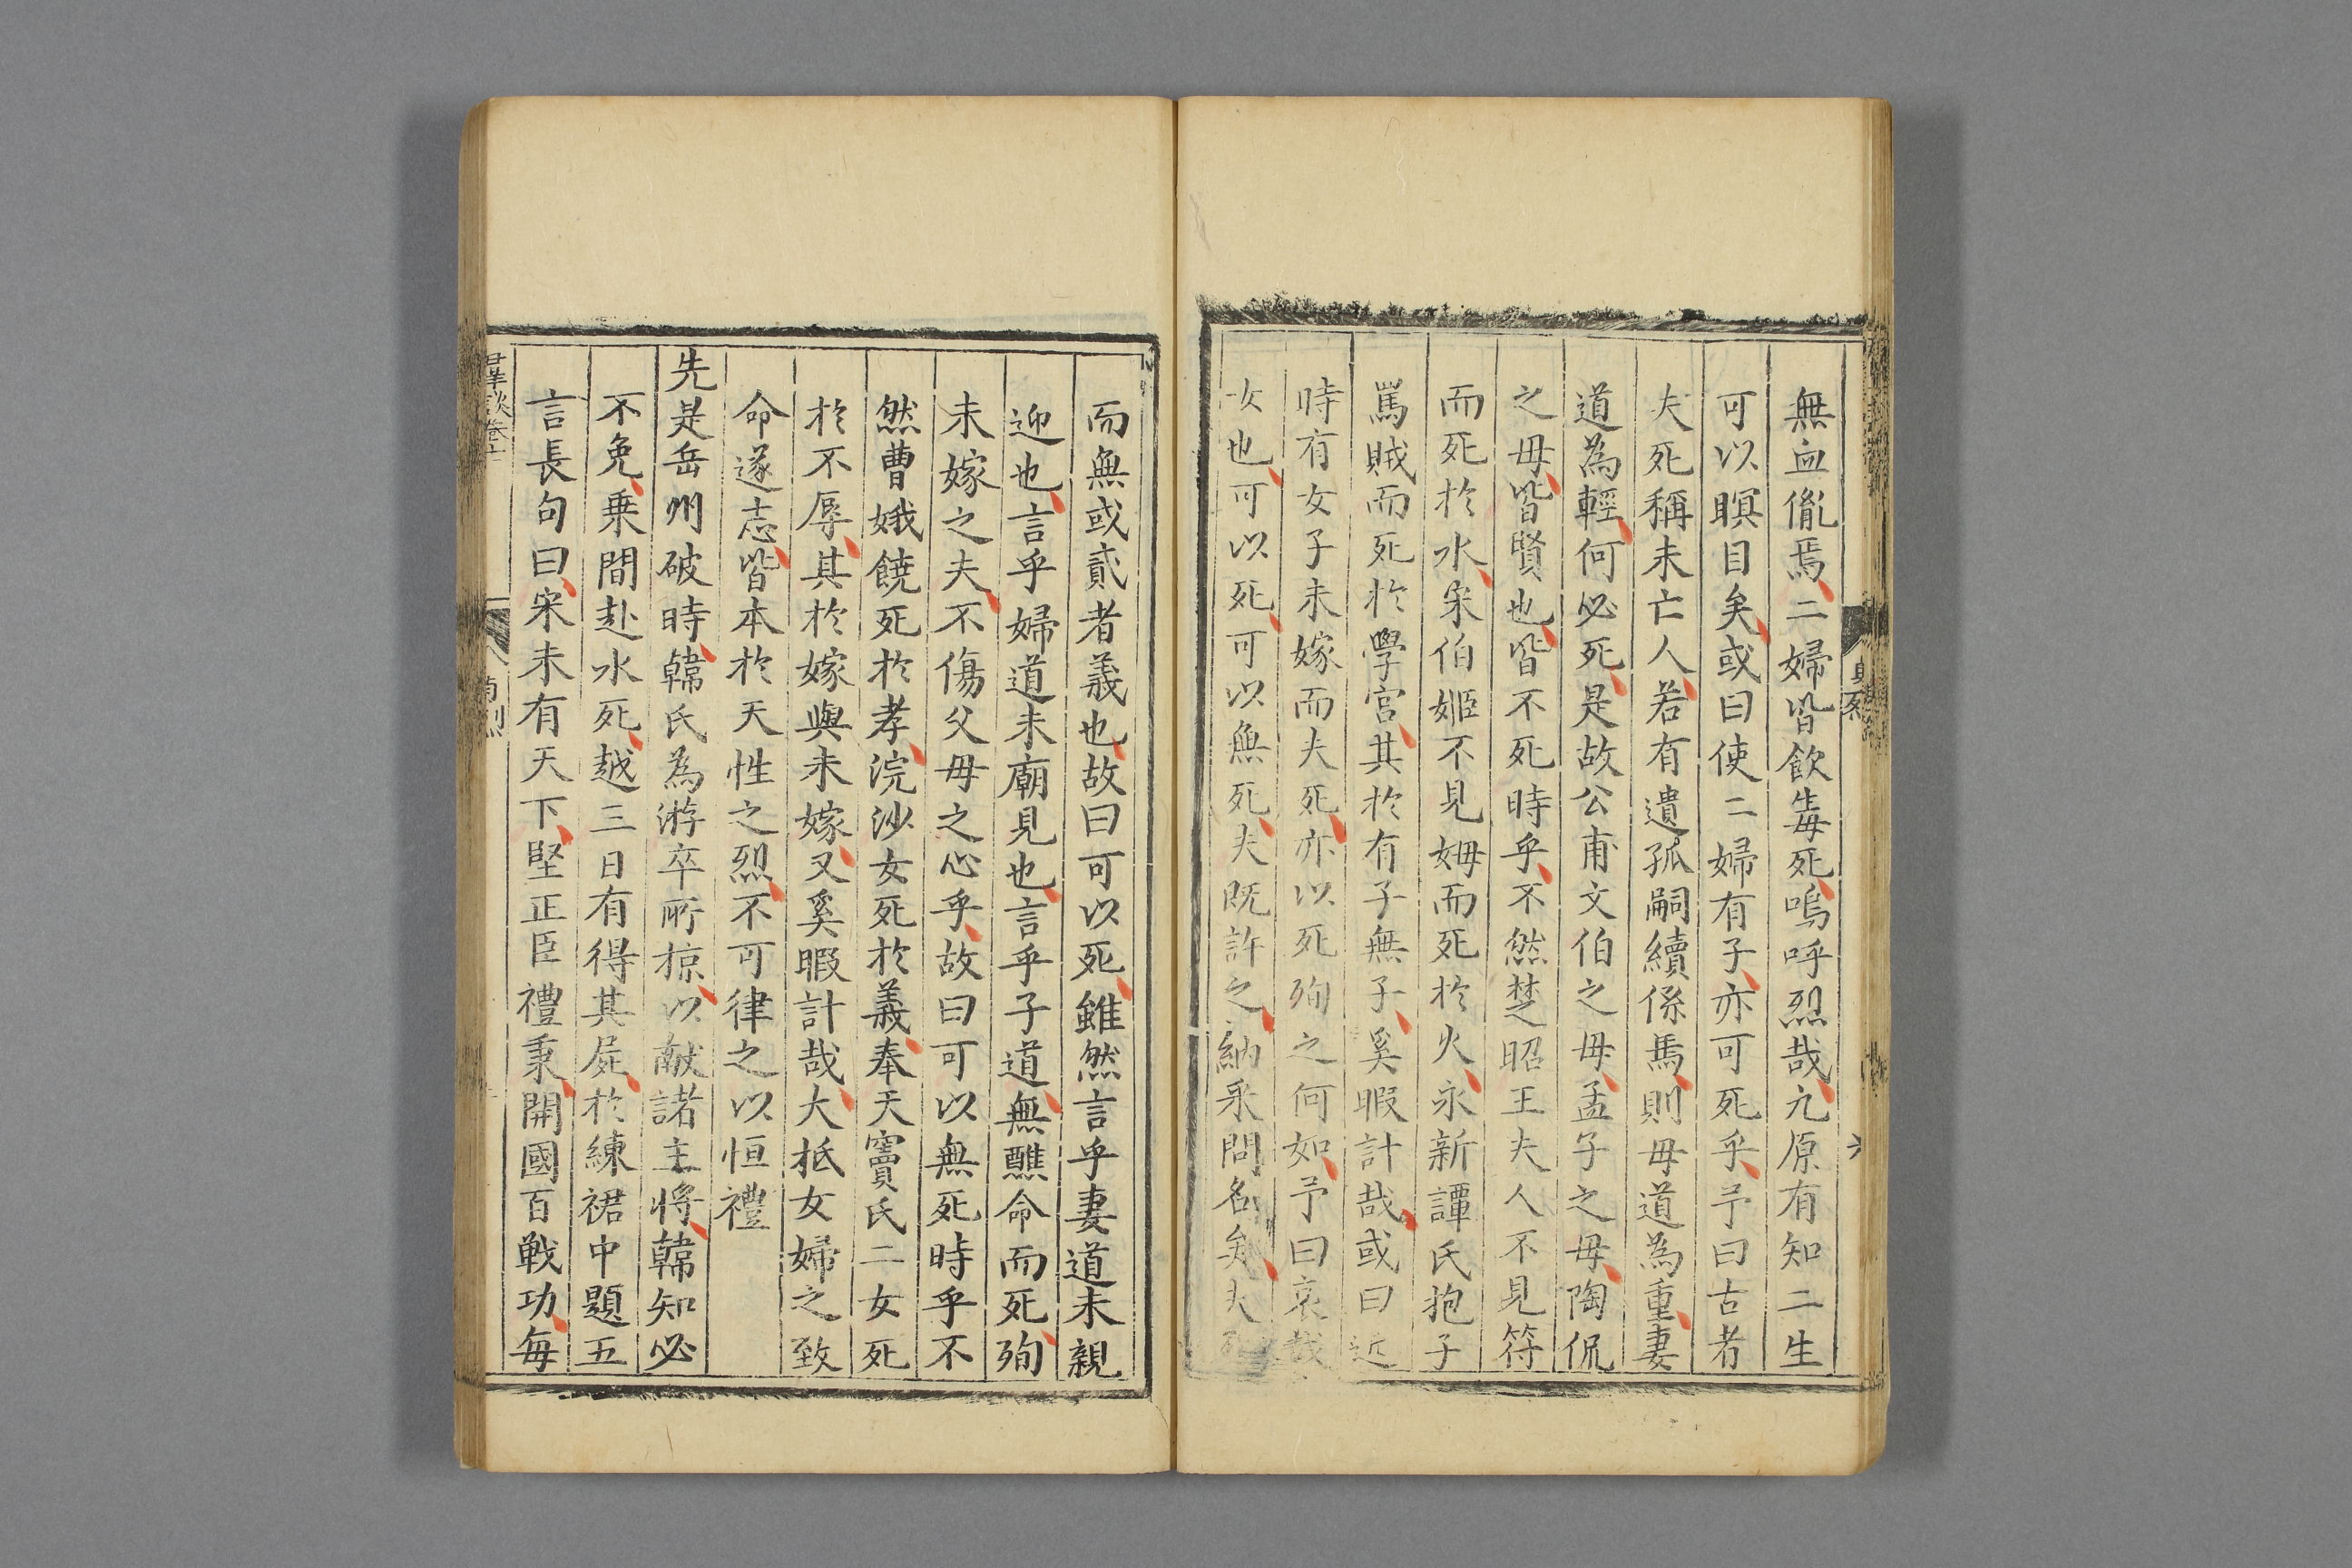 無血胤焉二婦皆飲毒死嗚呼烈哉九原有知二生
可以瞑目矣或曰使二婦有子亦可死乎予曰古者
夫死稱未亡人若有遺孤嗣續係焉則毋道為重妻
道為輕何必死是故公甫文伯之毋孟子之毋陶侃
之毋皆賢也皆不死時乎不然楚昭王夫人不見符
而死於水宋伯姬不見姆而死於火永新譚氏抱子
罵賊而死於學宮其於有子無子奚暇計哉或曰近
時有女子未嫁而夫死亦以死殉之何如予曰哀哉
女也可以死可以無死夫既許之納采問名矣夫死
而無或貳者義也故曰可以死雖然言乎妻道未親
迎也言乎婦道未廟見也言乎子道無醮命而死殉
未嫁之夫不傷父毋之心乎故曰可以無死時乎不
然曹娥饒死於孝浣沙女死於義奉天竇氏二女死
於不辱其於嫁與未嫁又奚暇計哉大抵女婦之致
命遂志皆本於天性之烈不可律之以恒禮
先是岳州破時韓氏為游卒所掠以獻諸主將韓知必
不免乗間赴水死越三日有得其屍於練裙中題五
言長句曰宋未有天下堅正臣禮秉開國百戰功每
羣談卷十